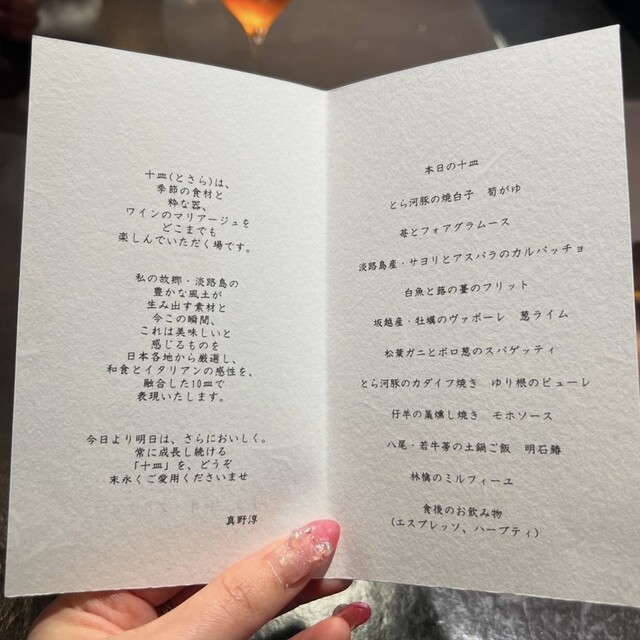 十皿(とさら)は、
季節の食材と
粋な器、
ワインのマリアージュを
どこまでも
楽しんでいただく場です。
私の故郷・淡路島の
豊かな風土が
生み出す素材と
今この瞬間、
これは美味しいと
感じるものを
日本各地から厳選し、
和食とイタリアンの感性を、
融合した10皿で
表現いたします。
今日より明日は、さらにおいしく。
常に成長し続ける
「十皿」を、どうぞ
末永くご愛用くださいませ
真野淳
本日の十皿
とら河豚の焼白子　筍がゆ
苺とフォアグラムース
淡路島産・サヨリとアスパラのカルパッチョ
白魚と蕗の薹のフリット
坂越産・牡蠣のヴァポーレ　葱ライム
松葉ガニとポロ葱のスパゲッティ
とら河豚のカダイフ焼き　ゆり根のピューレ
仔羊の藁燻し焼き　モホソース
八尾・若牛蒡の土鍋ご飯　明石鰆
林檎のミルフィーユ
食後のお飲み物
(エスプレッソ、ハーブティ)